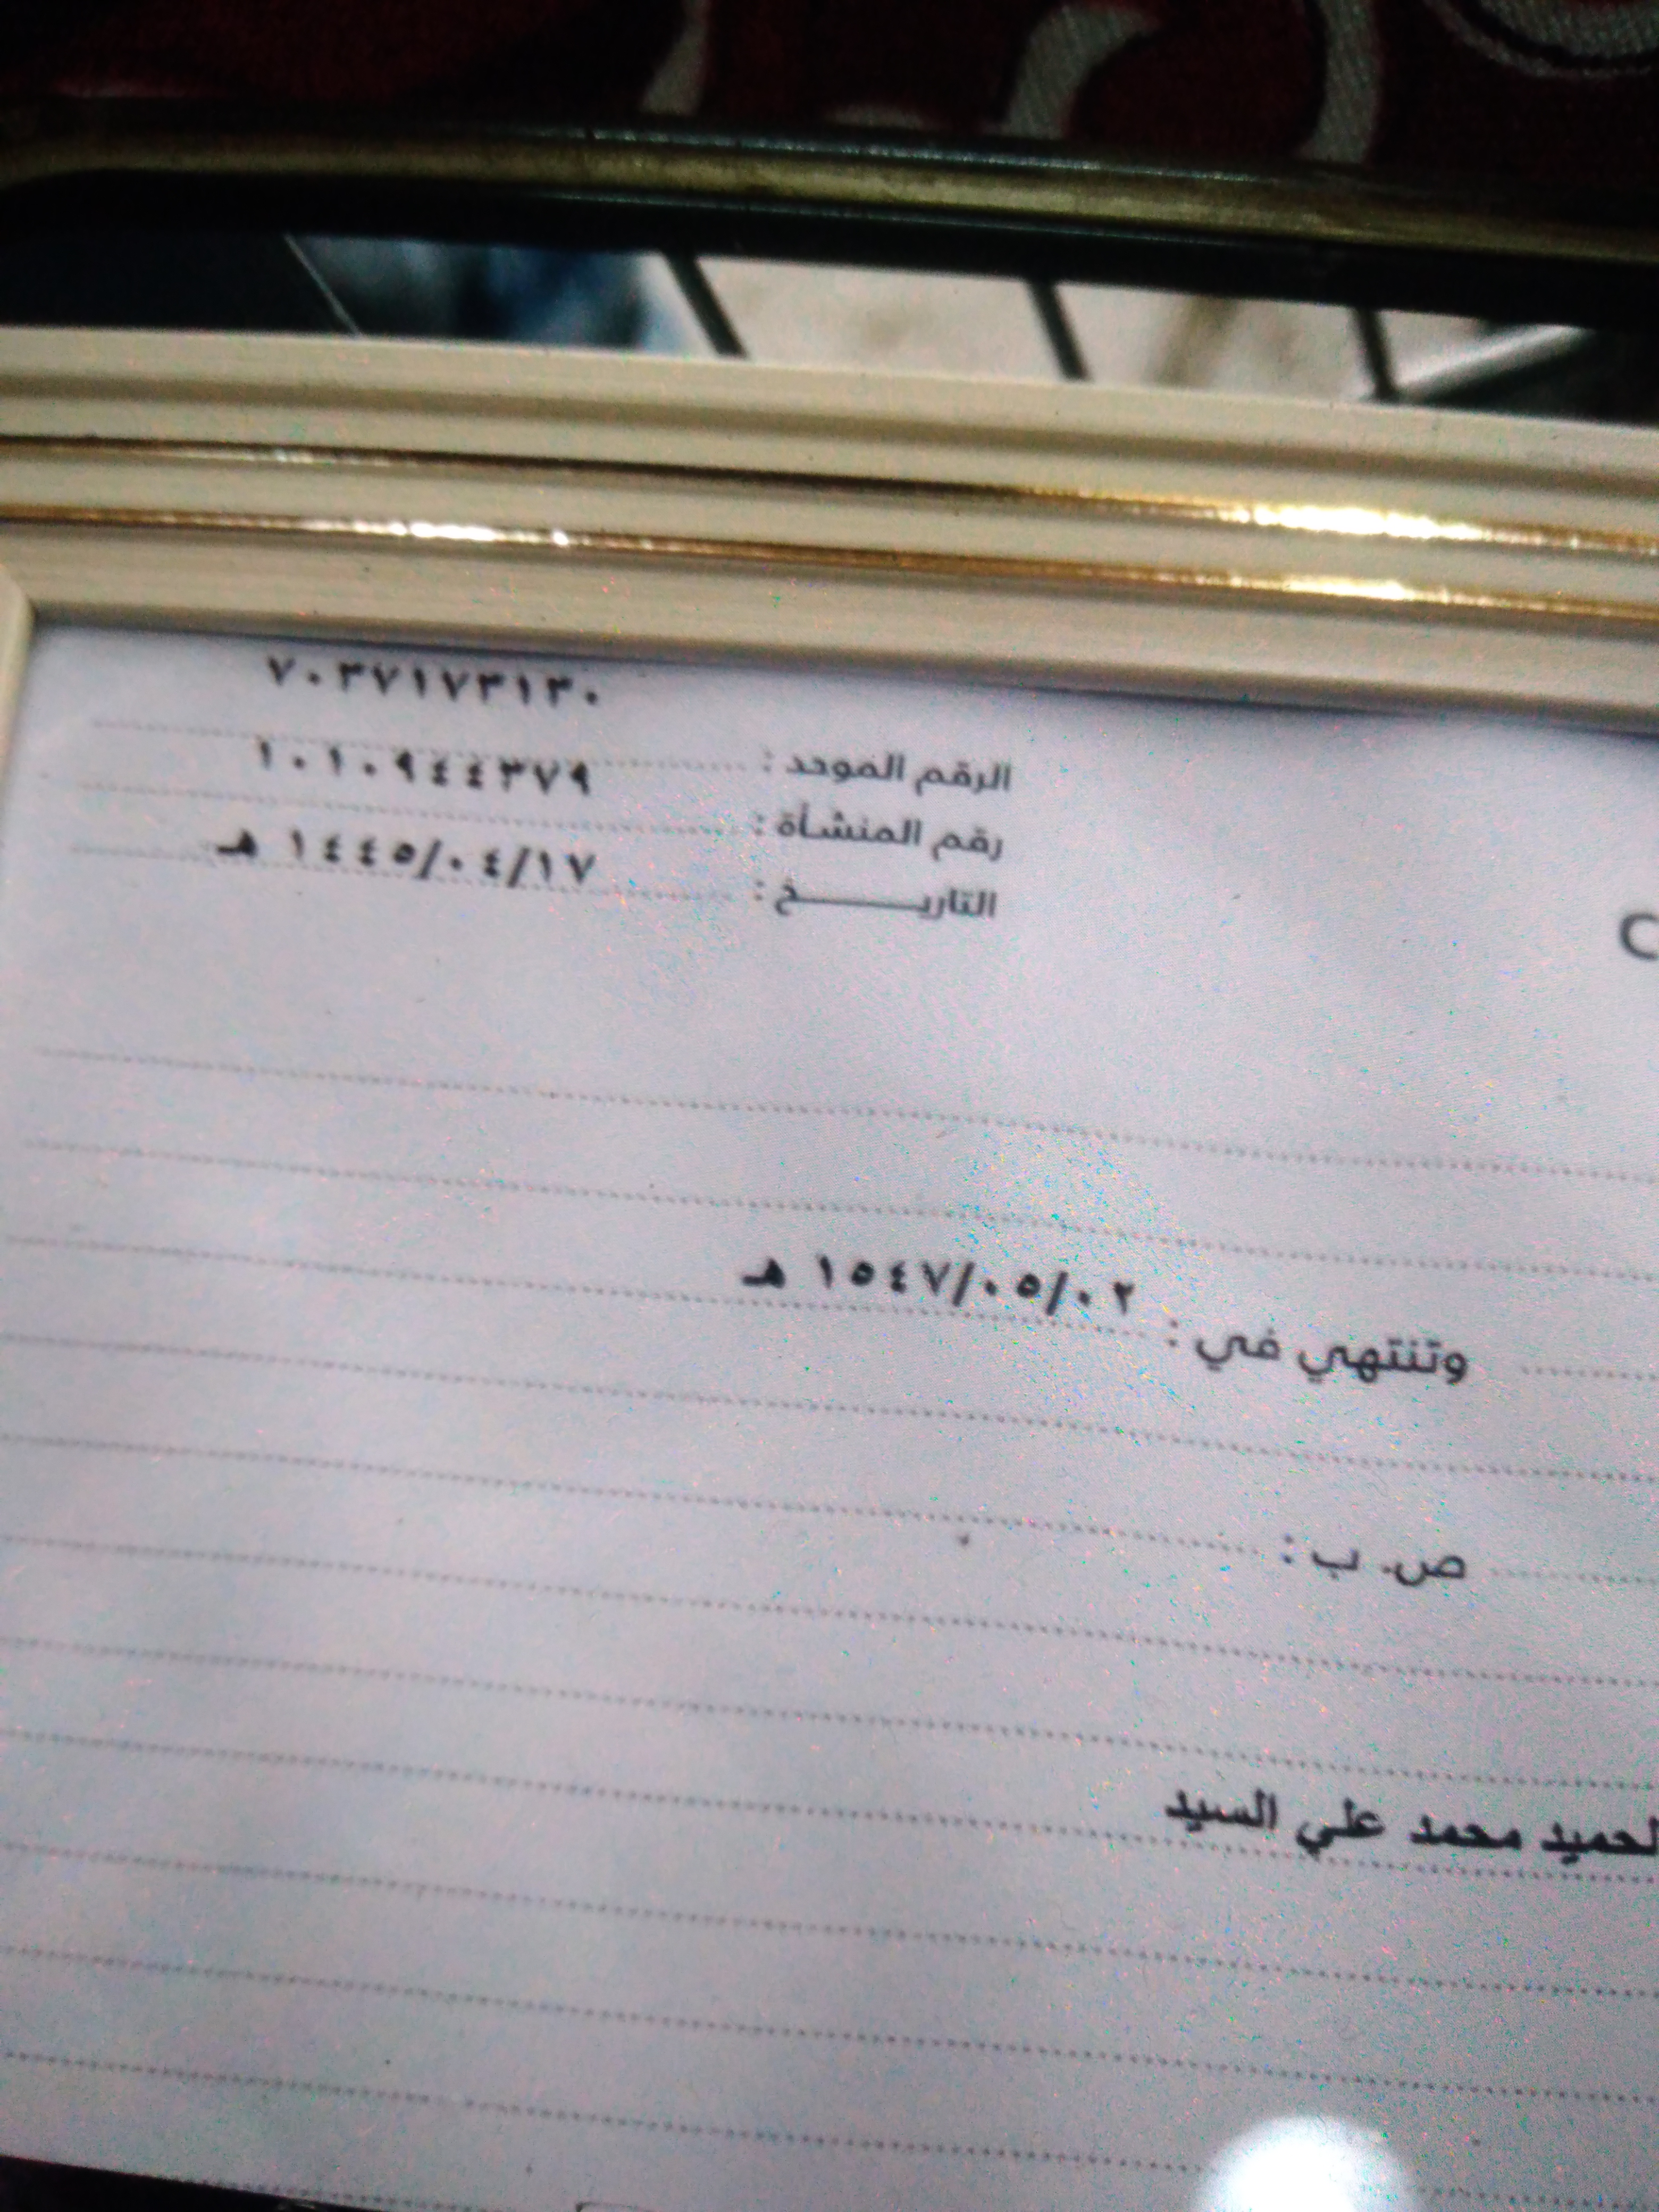 ٧٠٣٧١٧٣١٣٠
الرقم الموحد :
١٠١٠٩٤٤٣٧٩
رقم المنشأة :
١٤٤٥/٠٤/١٧ هـ
التاريـــــــخ :
C
وتنتهي في : ١٥٤٧/٠٥/٠٢ هـ
ص. ب :
لحميد محمد علي السيد